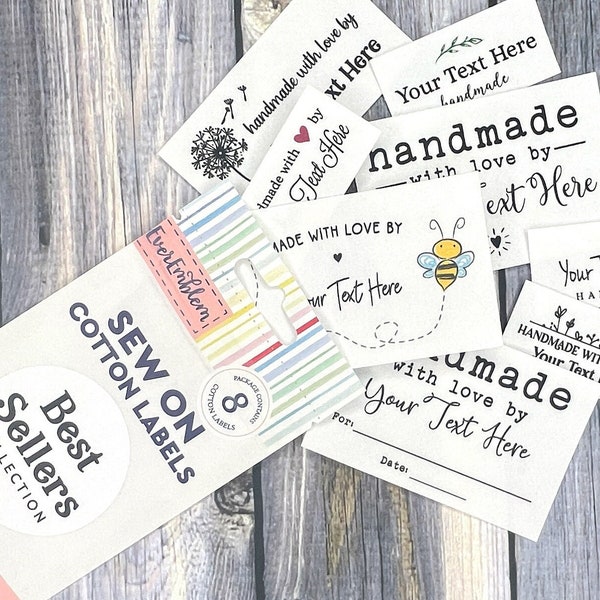 handmade with love by
Text Here
Your Text Here
handmade
made with by
Text Here
handmade
with love by
Text Here
MADE WITH LOVE BY
Your Text Here
HANDMADE WITH
Your Text Here
with love by
Your Text Here
For:
Date:
EverEmblem
SEW ON
COTTON LABELS
PACKAGE CONTAINS
8
COTTON LABELS
Best
Sellers
COLLECTION